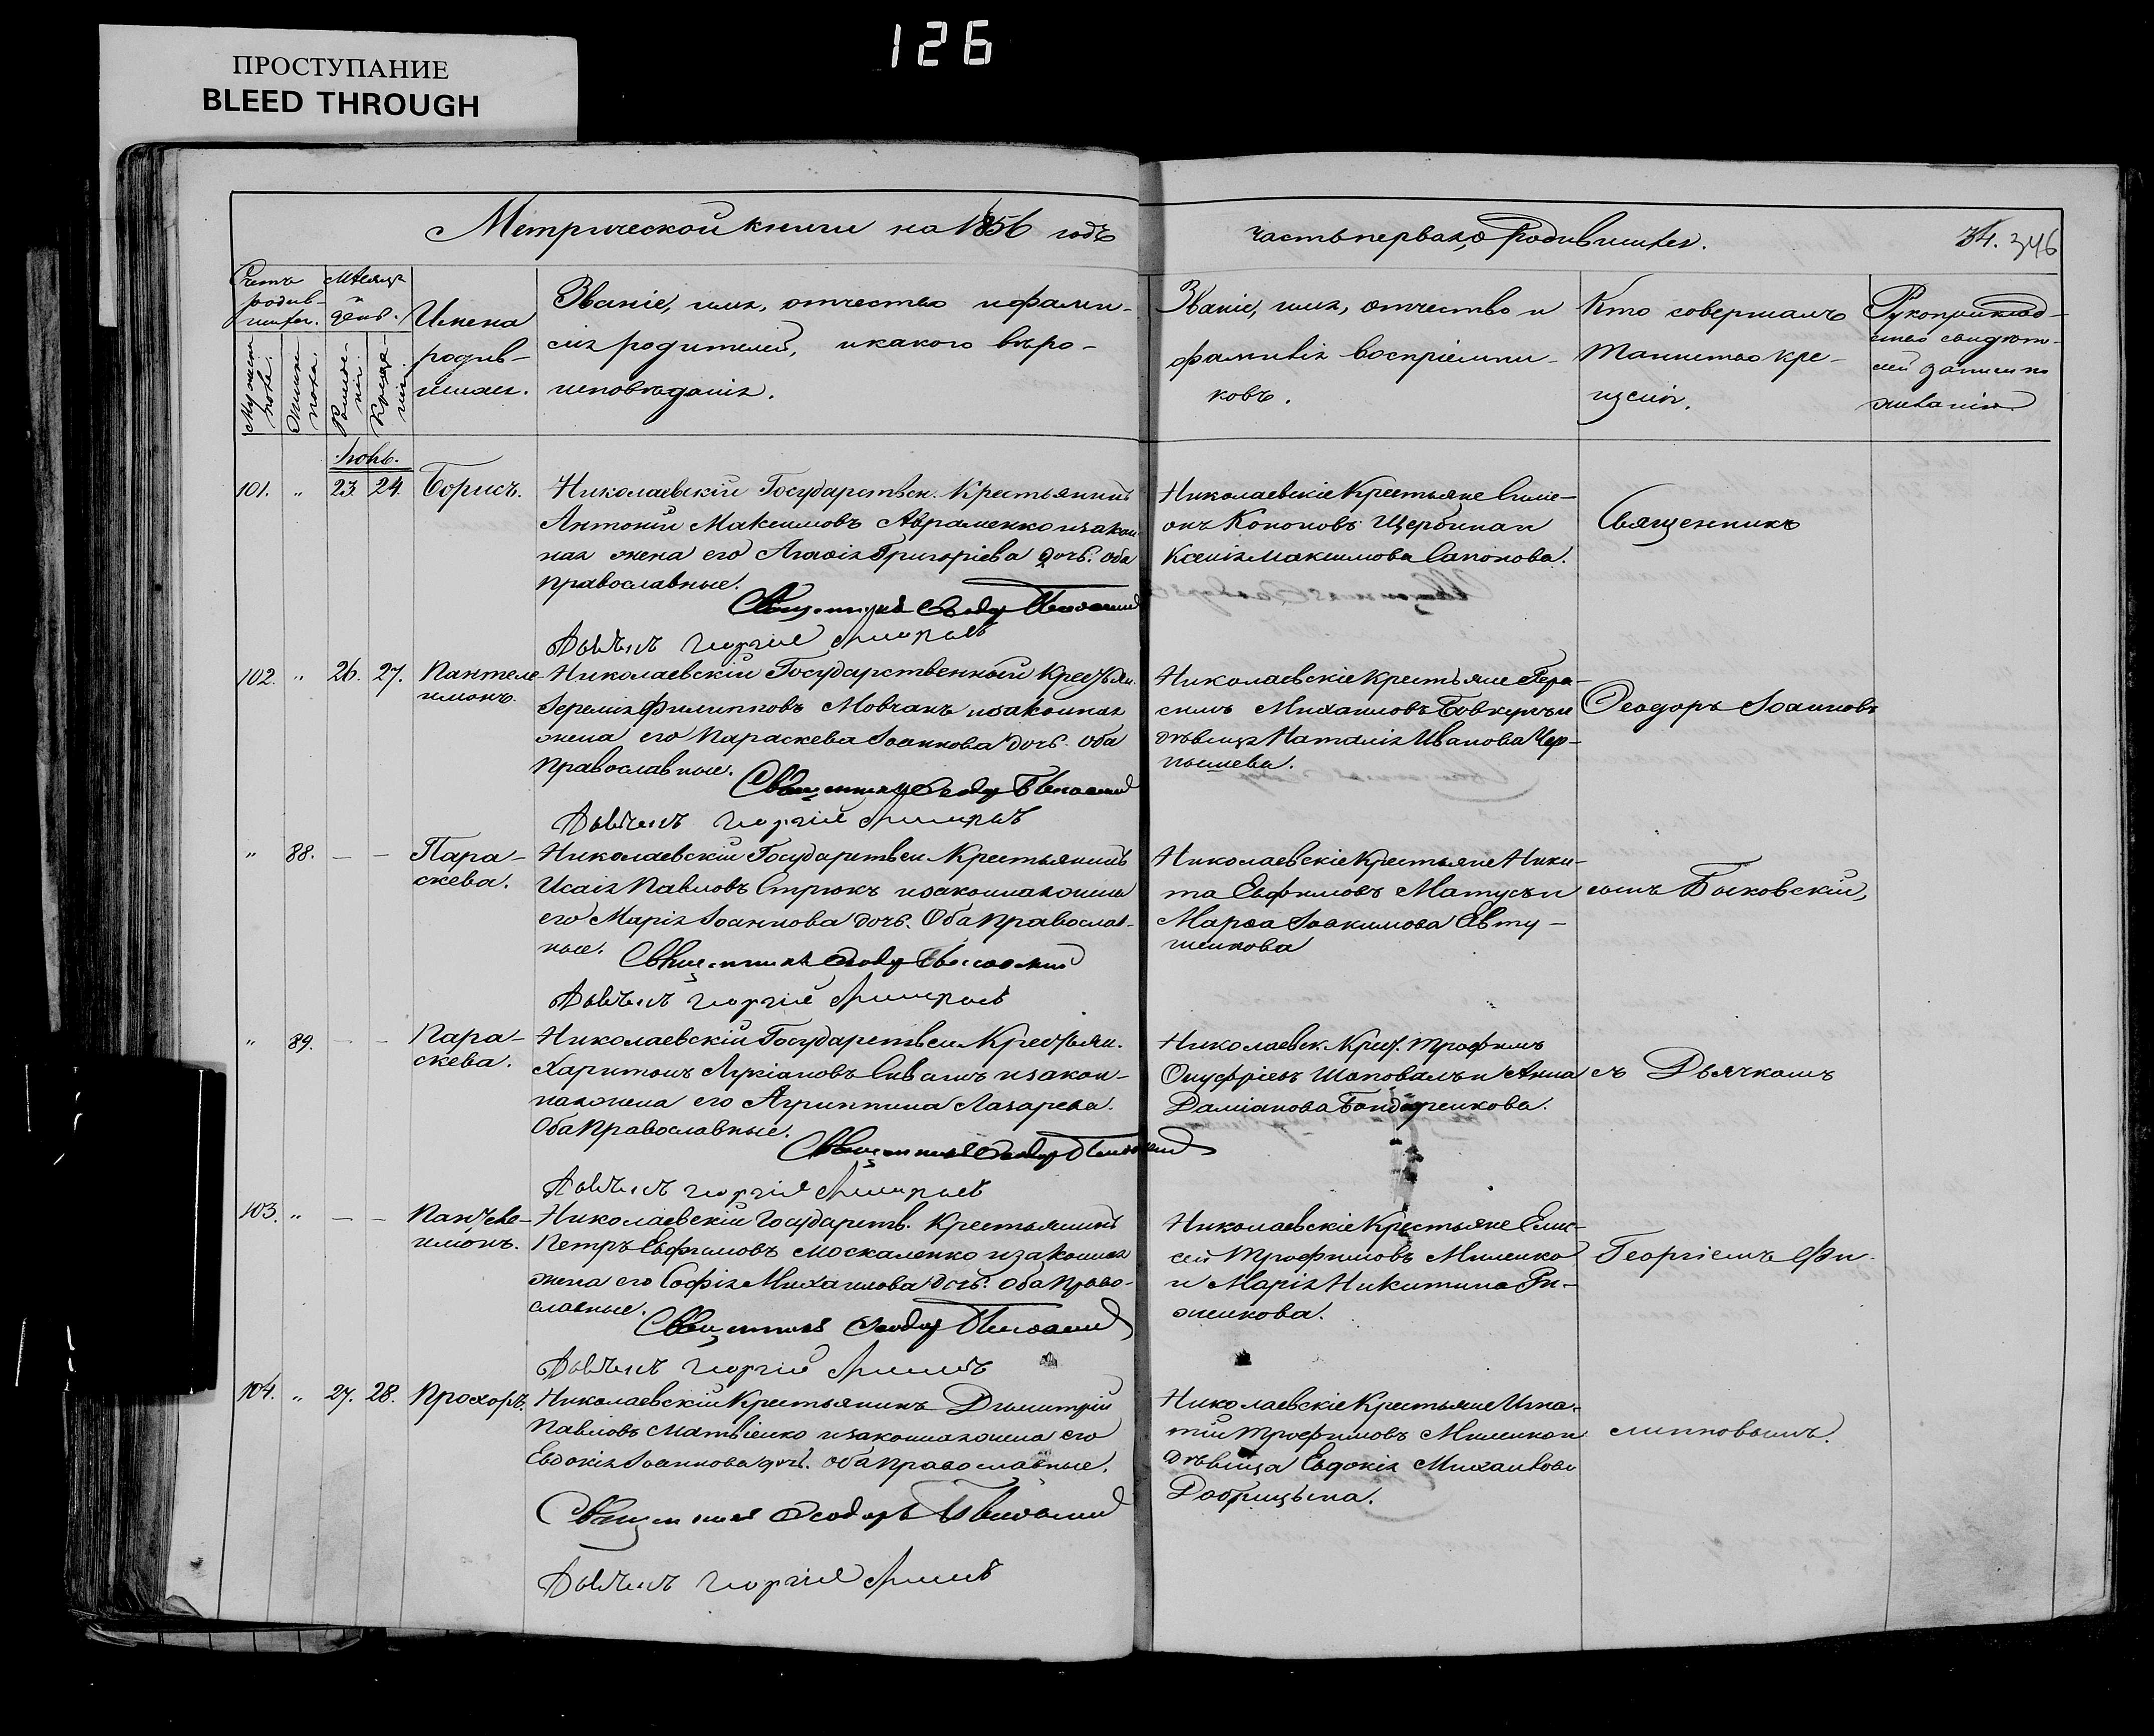 126
ПРОСТУПАНИЕ
BLEED THROUGH
Метрической книги на 1856 годъ
часть первая, о родившихся.
34. 346
Счетъ родив-шихся.
Мѣсяцъ и день.
Мужеска пола.
Женска пола.
Рожде-нія.
Креще-нія.
Имена
родив-
шихся.
Званіе, имя, отчество и фами-
лія родителей, и какого вѣро-
исповѣданія.
Званіе, имя, отчество и
фамилія воспріемни-
ковъ.
Кто совершалъ
таинство кре-
щенія.
Рукоприклад-
ство свидѣте-
лей записи по
желанію.
Іюль.
101. " 23. 24. Борисъ.
Николаевскій Государствен. Крестьянинъ
Антоній Максимовъ Авраменко и закон-
ная жена его Агаѳія Григоріева дочь. оба
православные.
Священникъ Ѳеодоръ
Дьячекъ Георгій
Николаевскіе Крестьяне Симе-
онъ Кононовъ Щербина и
Ксенія Максимова Сапонова.
Священникъ
102. " 26. 27. Пантеле-
имонъ.
Николаевскій Государственный Крестьян.
Іеремія Филипповъ Мовчанъ и законная
жена его Параскева Іоаннова дочь. Оба
православные.
Священникъ Ѳеодоръ
Дьячекъ Георгій
Николаевскіе Крестьяне Гера-
симъ Михаиловъ Бовкунъ и
дѣвица Наталія Иванова Чер-
нышева.
Ѳеодоръ Іоанновъ
" 88. — — Пара-
скева.
Николаевскій Государствен. Крестьянинъ
Исаія Павловъ Стрюкъ и законная жена
его Марія Іоаннова дочь. Оба православ-
ные.
Священникъ Ѳеодоръ
Дьячекъ Георгій
Николаевскіе Крестьяне Ники-
та Евфимовъ Матусъ и
Марѳа Іоакимова Евту-
шенкова
сынъ Быковскій,
" 89. — — Пара-
скева.
Николаевскій Государствен. Крестьян.
Харитонъ Лукіановъ Сивашъ и закон-
ная жена его Агриппина Лазарева.
Оба православные.
Священникъ Ѳеодоръ
Дьячекъ Георгій
Николаевск. Крест. Трофимъ
Онуфріевъ Шаповалъ и Анна
Даміанова Бондаренкова.
съ Дьячкомъ
103. " — — Пантеле-
имонъ.
Николаевскій Государств. Крестьянинъ
Петръ Евфимовъ Москаленко и законная
жена его Софія Михаилова дочь. Оба право-
славные.
Священникъ Ѳеодоръ
Дьячекъ Георгій
Николаевскіе Крестьяне Елис-
сей Трофимовъ Миленко
и Марія Никитина Ри-
женкова.
Георгіемъ Фи-
104. " 27. 28. Прохоръ.
Николаевскій Крестьянинъ Димитрій
Павловъ Матвіенко и законная жена его
Евдокія Іоаннова дочь. Оба православные.
Священникъ Ѳеодоръ
Дьячекъ Георгій
Николаевскіе Крестьяне Игна-
тій Трофимовъ Миленко и
дѣвица Евдокія Михаилова
Добрицына.
липповымъ.